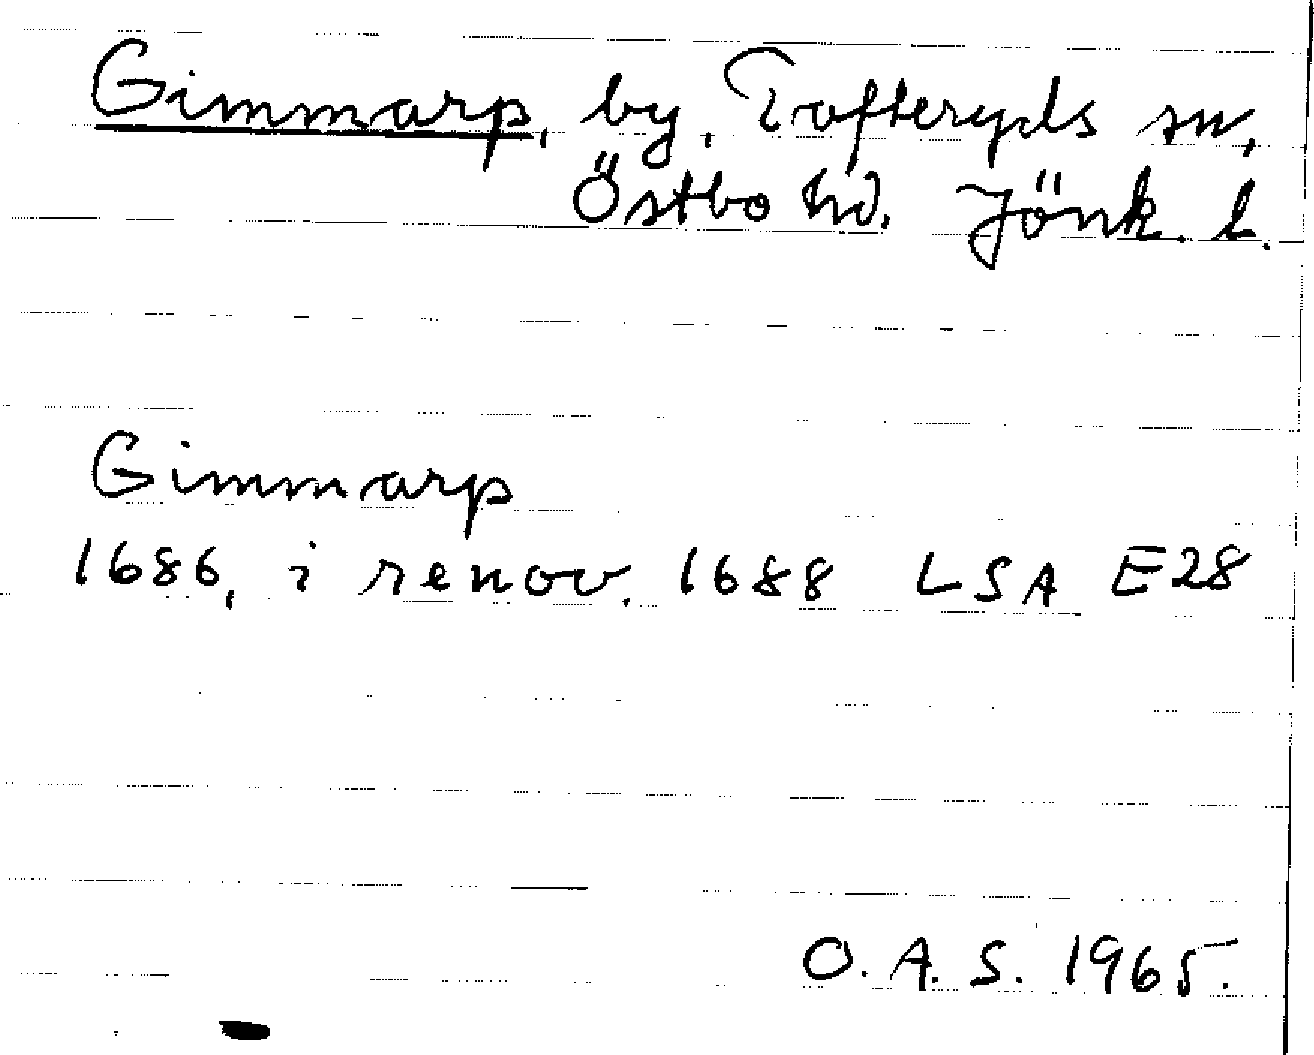 Gimmarp, by, Tofteryds sn,
Östbo hd. Jönk. l.
Gimmarp
1686, i renov. 1688 LSA E28
O. A. S. 1965.